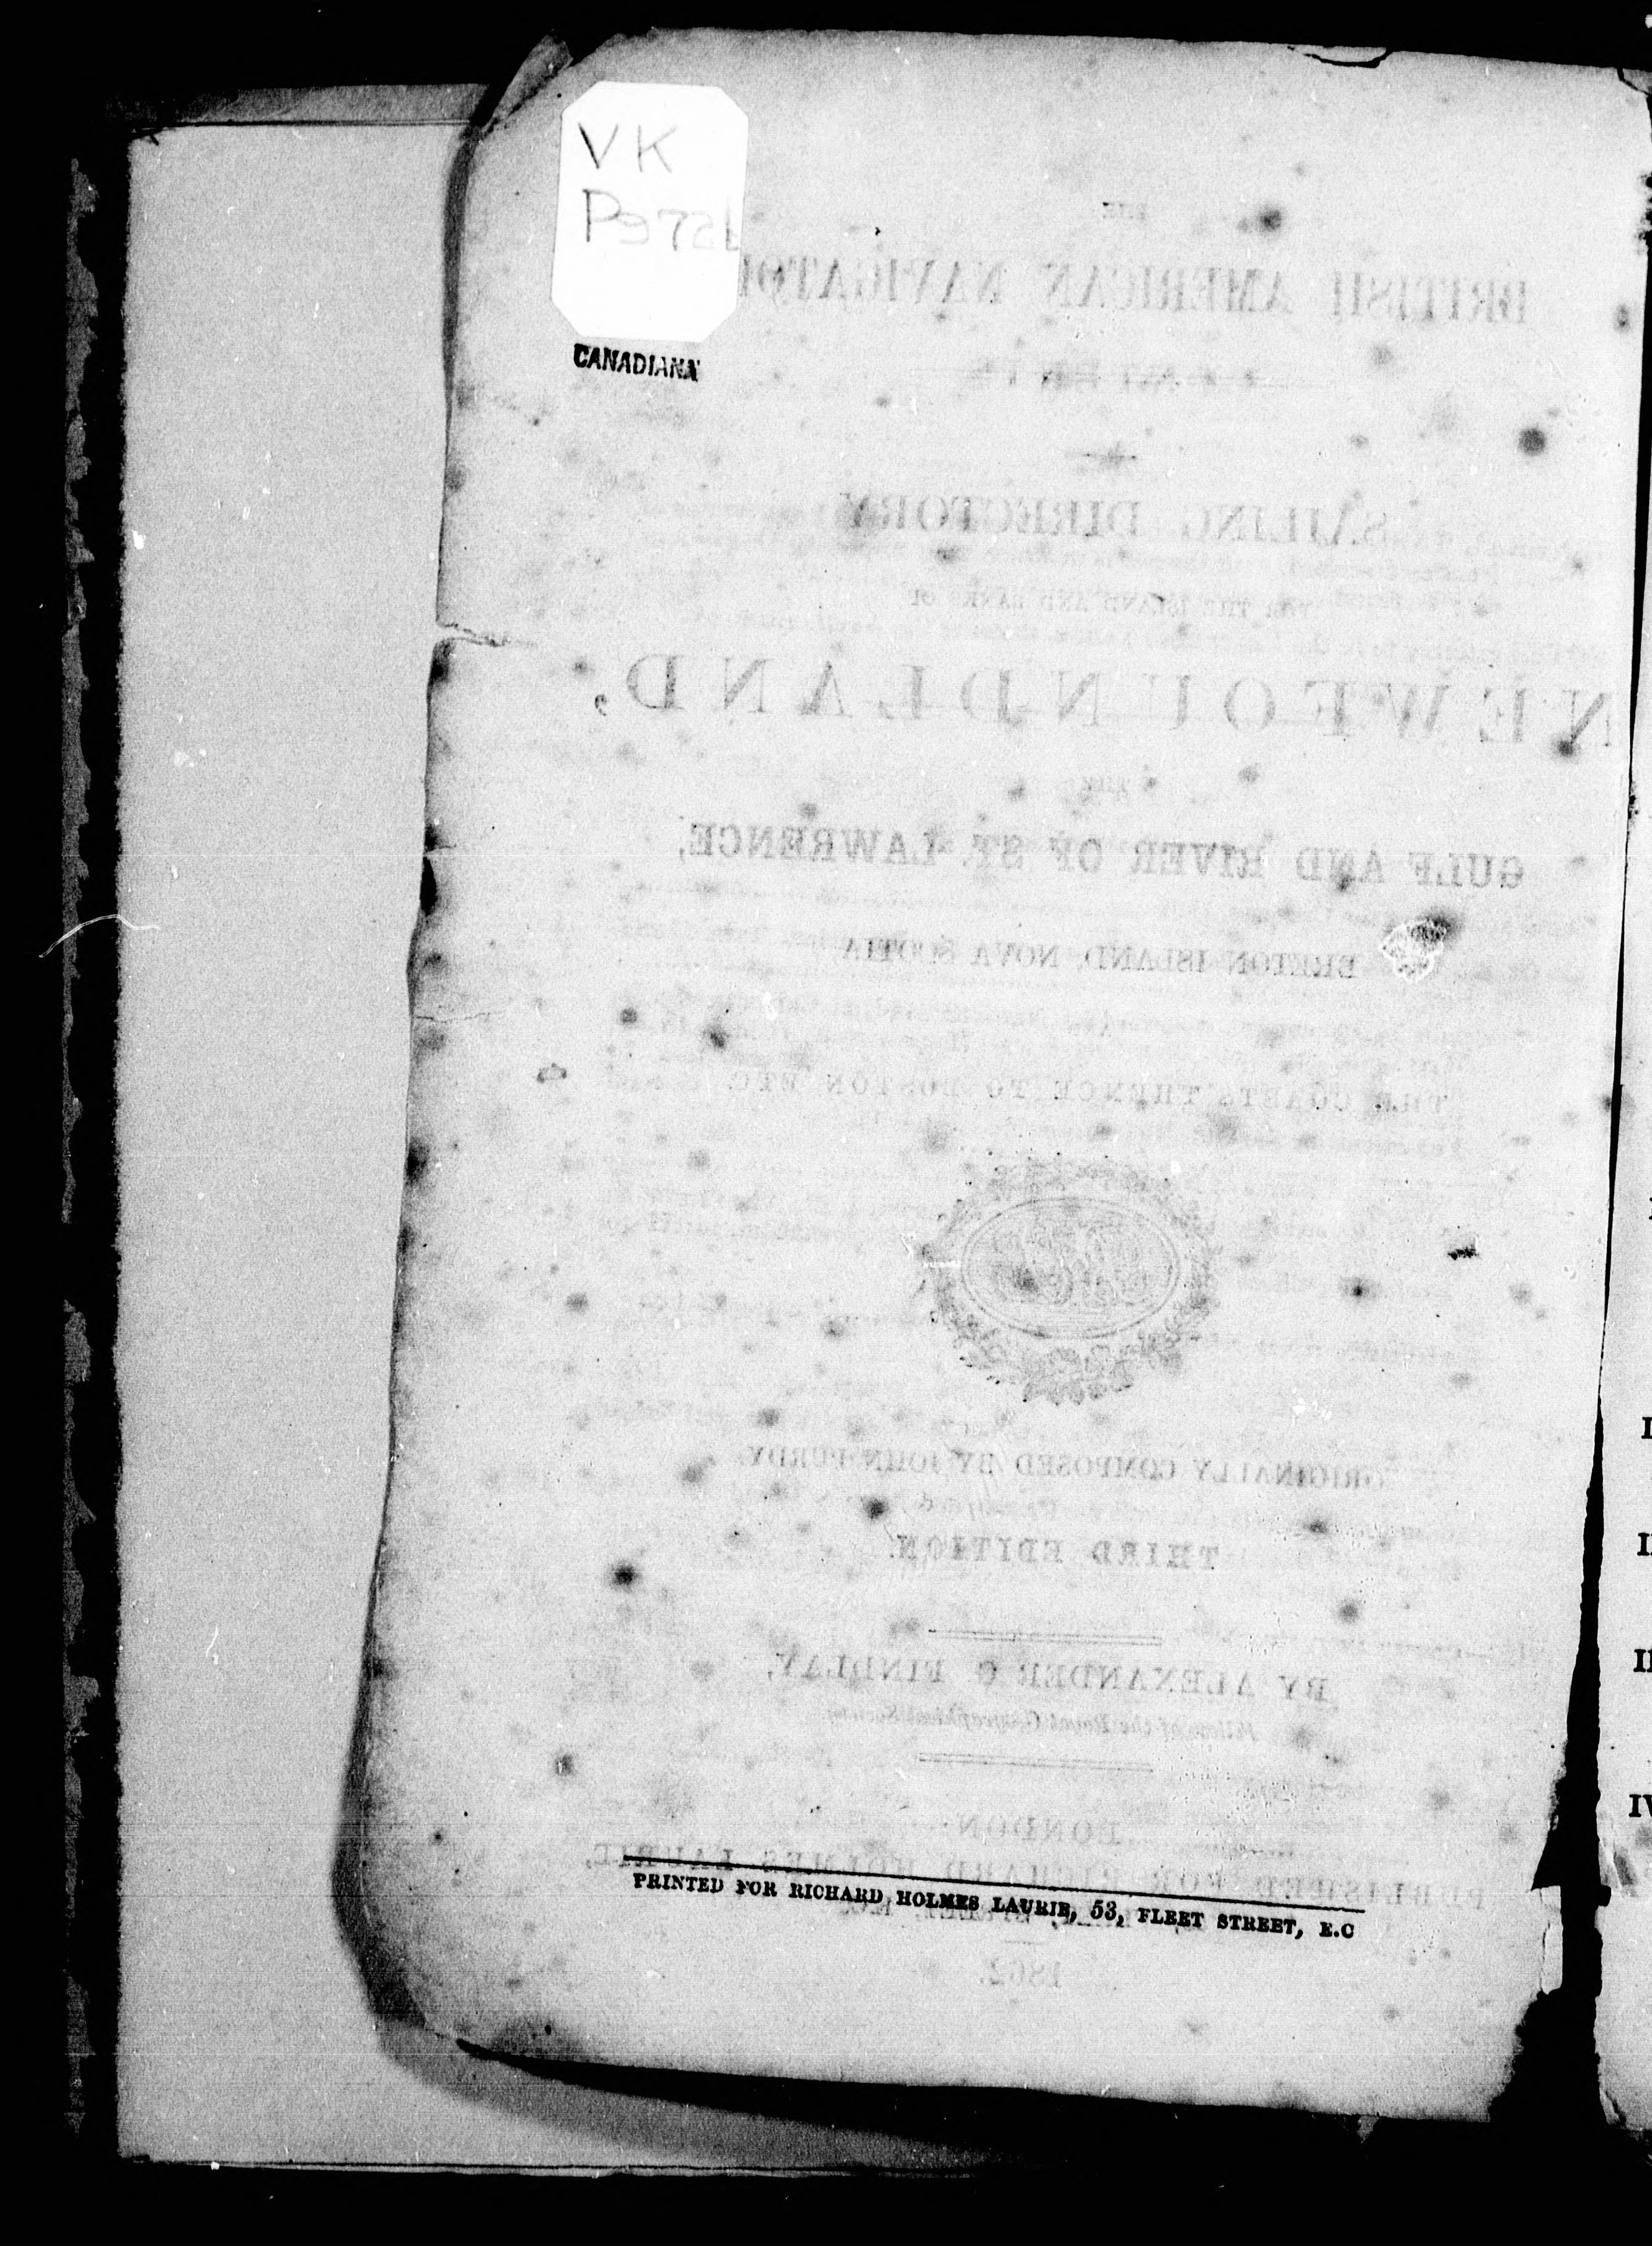 VK
CANADIANA
BRITISH AMERICAN NAVIGATOR
SAILING DIRECTORY
FOR THE ISLAND AND BANKS OF
NEWFOUNDLAND,
THE
GULF AND RIVER OF ST. LAWRENCE,
BRETON ISLAND, NOVA SCOTIA
THE COASTS THENCE TO BOSTON ETC
ORIGINALLY COMPOSED BY JOHN PURDY
THIRD EDITION.
BY ALEXANDER G FINDLAY,
Fellow of the Royal Geographical Society
LONDON
PUBLISHED FOR RICHARD HOLMES LAURIE,
PRINTED FOR RICHARD HOLMES LAURIE, 53, FLEET STREET, E.C
1862.